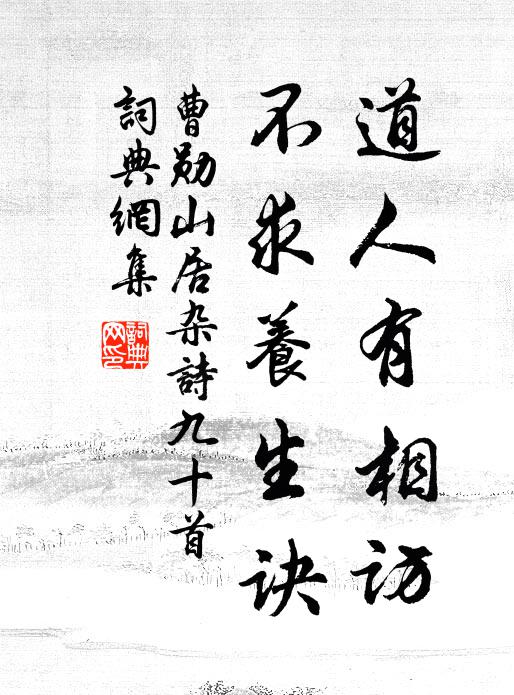 道人有相访
不求養生诀
曹勋山居杂詩九十首
詞典網集
詞典網印